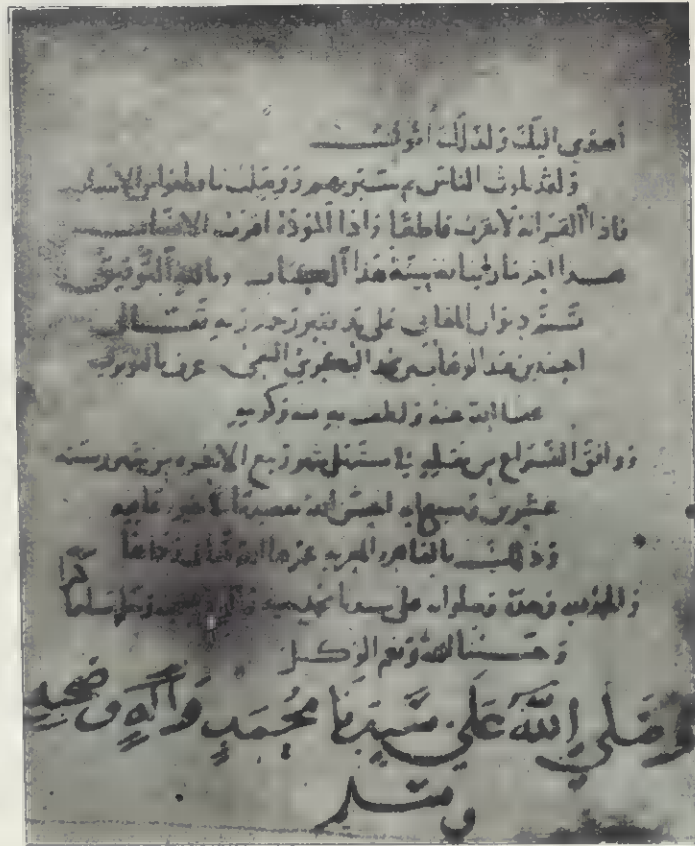 ولقد بلوت الناس ثم سبرتهم ووصلت ما قطعوا من الاسباب
فاذا القرابة لا تقرب قاطعا واذا المودة اقرب الانساب
هذا اخر ما رأينا هذا الكتاب وبالله التوفيق
تم ديوان المعاني على يد فقير رحمة ربه تعالى
احمد بن عبد الوهاب بن محمد البكري التيمي عرف بالنويري
عفا الله عنه ولطف به بمنه وكرمه
ووافق الفراغ من نقله في مستهل شهر ربيع الاخر من شهور سنة
عشرين وسبعمايه احسن الله
وذلك بالقاهرة المعزية عمرها الله
والحمد لله وحده وصلواته على سيدنا محمد وآله وصحبه
وحسبنا الله ونعم الوكيل
وصلى الله على سيدنا محمد وآله وصحبه
وسلم